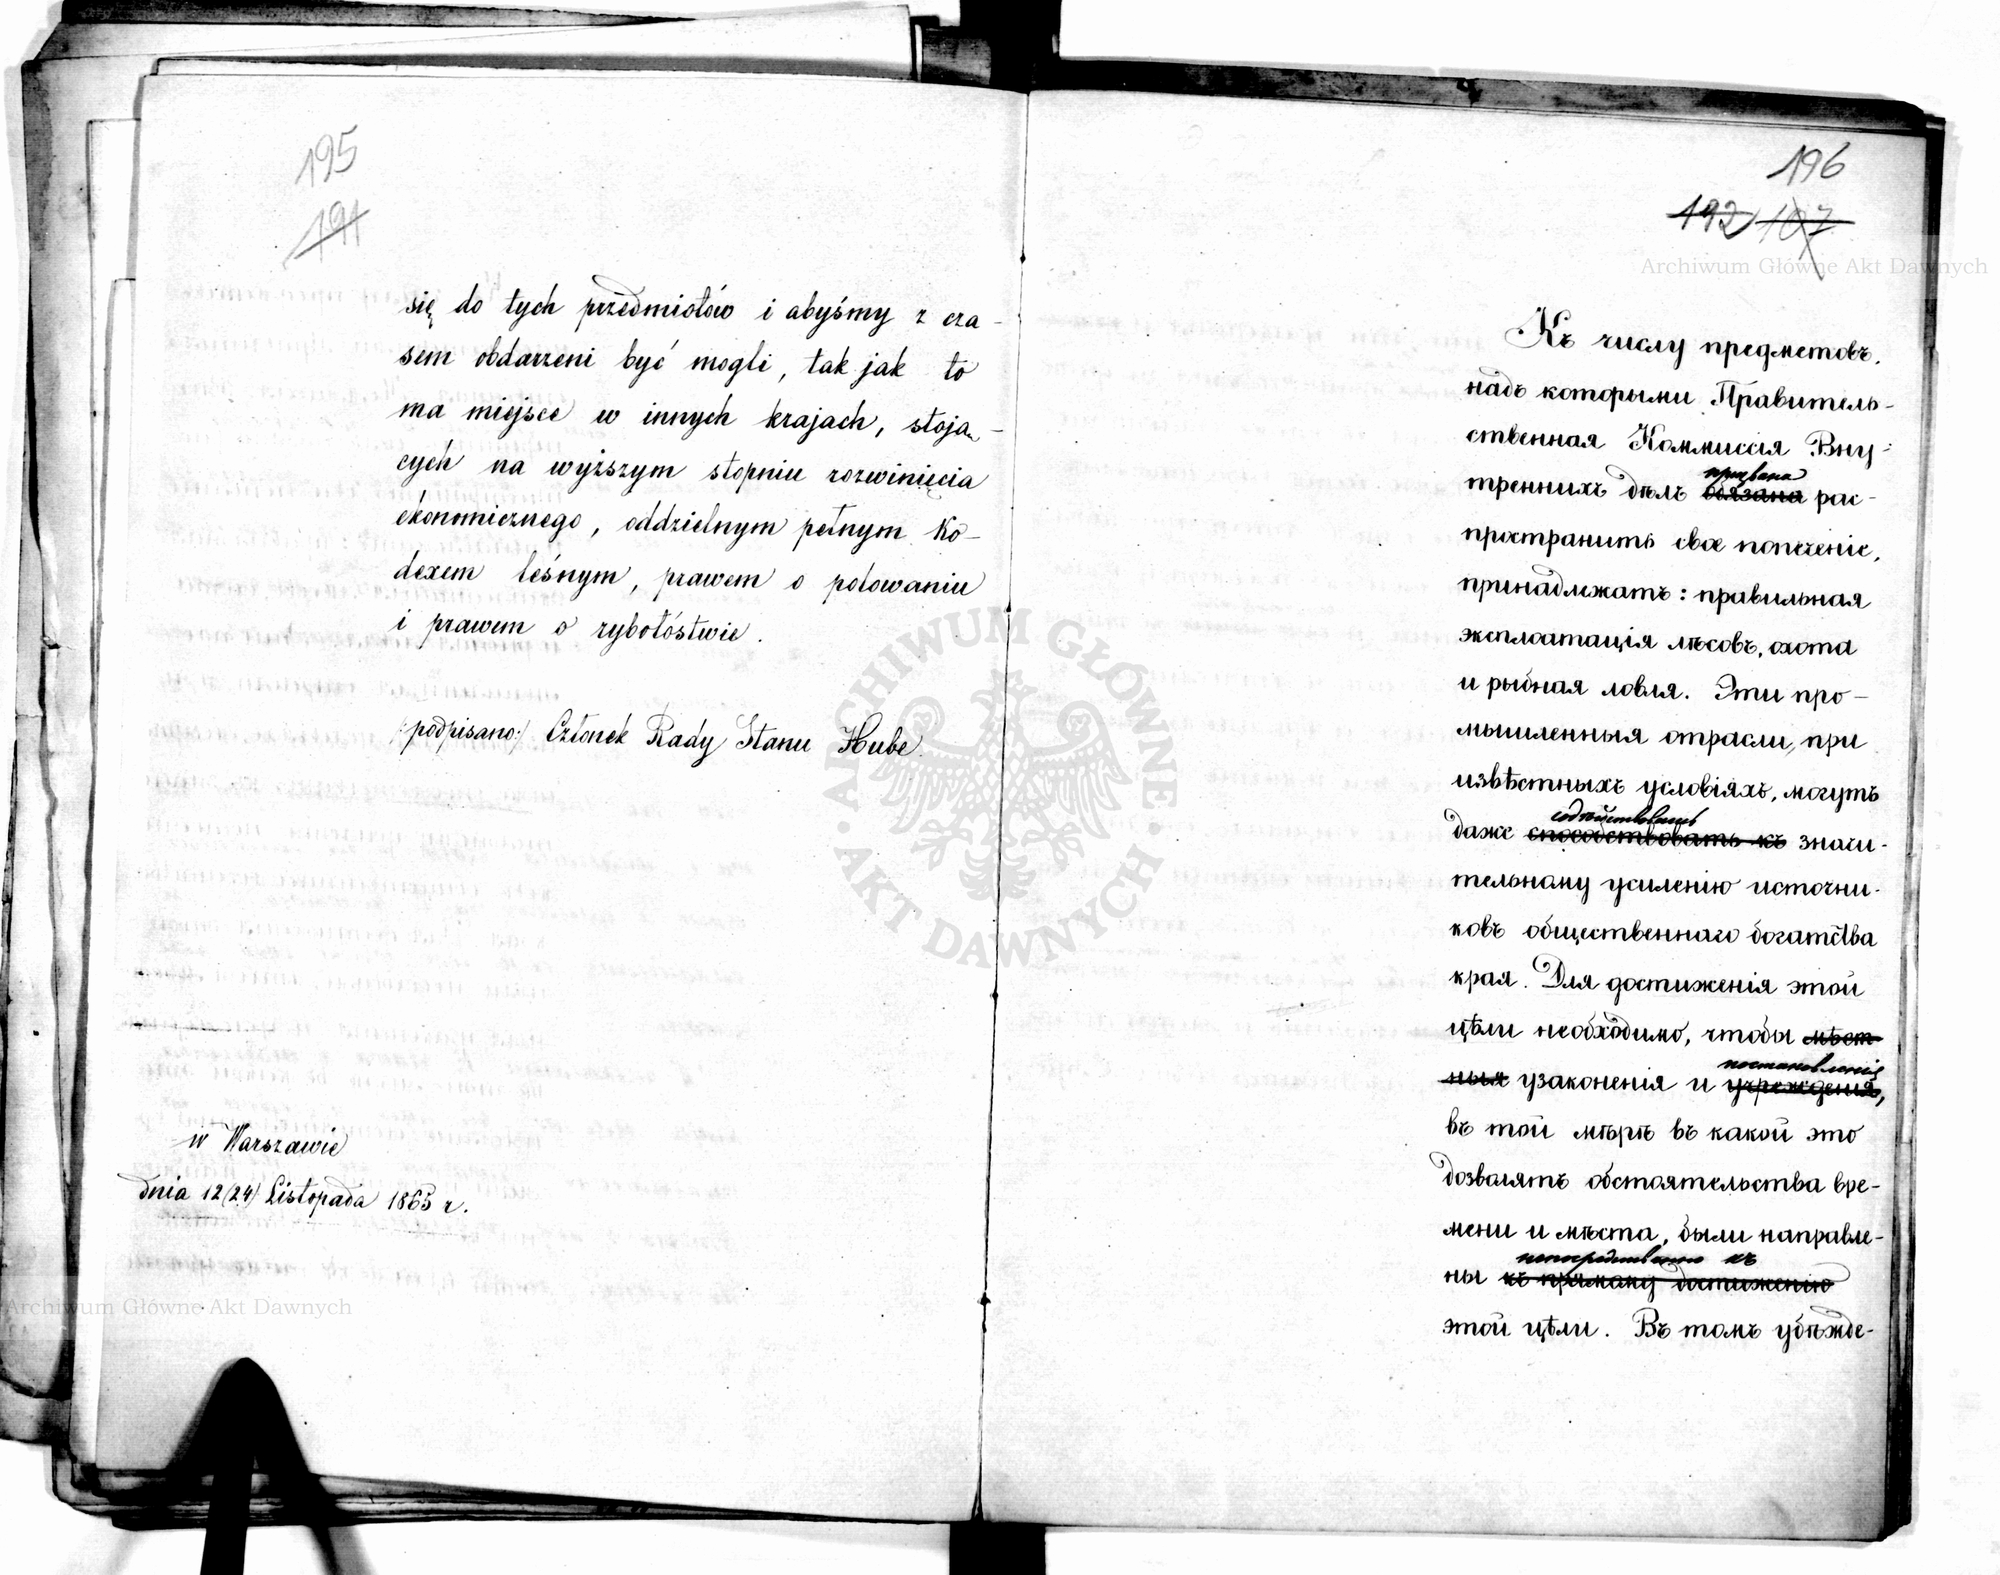 195
191
się do tych przedmiotów i abyśmy z cza-
sem obdarzeni być mogli, tak jak to
ma miejsce w innych krajach, stoją-
cych na wyższym stopniu rozwinięcia
ekonomicznego, oddzielnym pełnym Ko-
dexem leśnym, prawem o polowaniu
i prawem o rybołóstwie.
/:podpisano:/ Członek Rady Stanu Hube.
w Warszawie
dnia 12 (24) Listopada 1865 r.
196
192 107
Къ числу предметовъ,
надъ которыми Правитель-
ственная Коммиссія Вну-
призвана
треннихъ дѣлъ обязана рас-
пространить свое попеченіе,
принадлежатъ: правильная
эксплоатація лѣсовъ, охота
и рыбная ловля. Эти про-
мышленныя отрасли, при
извѣстныхъ условіяхъ, могутъ
содѣйствовать
даже способствовать къ значи-
тельному усиленію источни-
ковъ общественнаго богатства
края. Для достиженія этой
цѣли необходимо, чтобы мѣст-
постановленія
ныя узаконенія и учрежденія,
въ той мѣрѣ въ какой это
дозволятъ обстоятельства вре-
мени и мѣста, были направле-
непосредственно къ
ны къ прямому достиженію
этой цѣли. Въ томъ убѣжде-
Archiwum Główne Akt Dawnych
Archiwum Główne Akt Dawnych
ARCHIWUM GŁÓWNE
AKT DAWNYCH